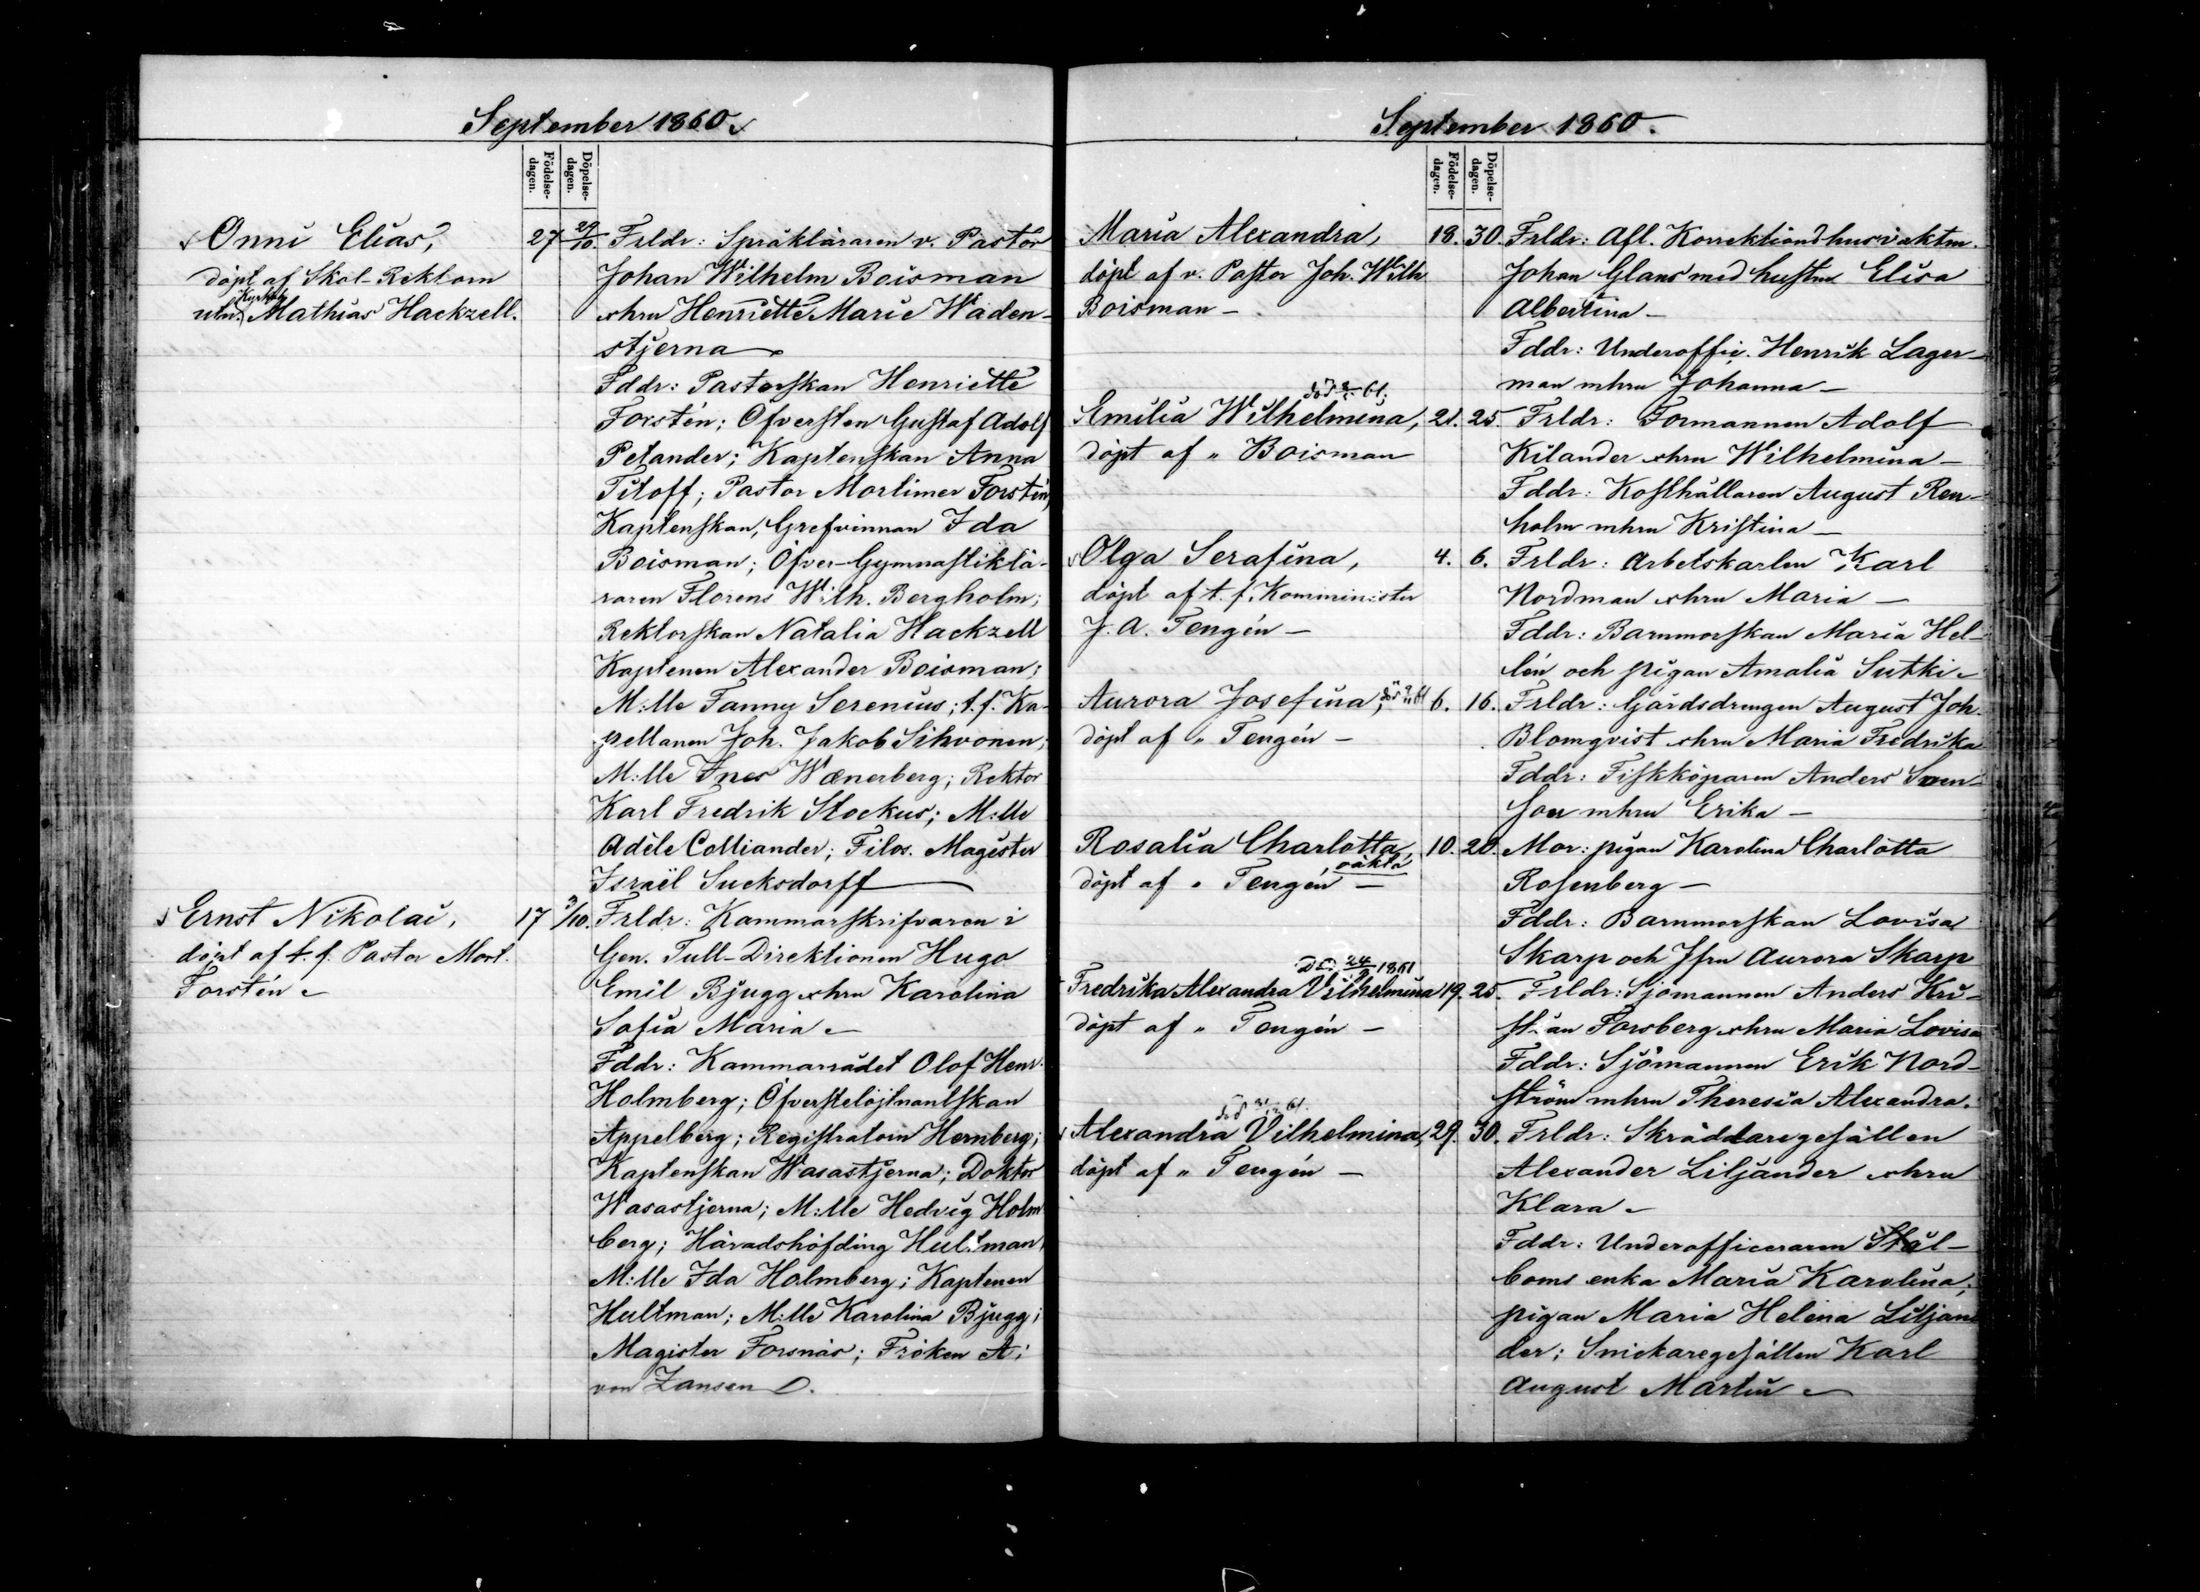 September 1860.
Födelse-dagen.
Döpelse-dagen.
Onni Elias,
döpt af Skol-Rektorn
Mathias Hackzell.
27 29/10.
Frldr: Språkläraren v. Pastor
Johan Wilhelm Boisman
o hru Henriette Marie Waden-
stjerna
Fddr: Pastorskan Henriette
Forstén; Öfversten Gustaf Adolf
Petander; Kaptenskan Anna
Titoff; Pastor Mortimer Forstén,
Kaptenskan, Grefvinnan Ida
Boisman; Öfver-Gymnastiklä-
raren Florens Wilh. Bergholm;
Rektorskan Natalia Hackzell
Kaptenen Alexander Boisman;
M:lle Fanny Serenius; t.f. Ka-
pellanen Joh. Jakob Sihvonen;
M:lle Ines Wænerberg; Rektor
Karl Fredrik Stockus; M:lle
Adèle Colliander; Filos. Magister
Israël Sucksdorff
Ernst Nikolai,
döpt af t.f. Pastor Mort.
Forstén
17 3/10.
Frldr: Kammarskrifvaren i
Gen. Tull-Direktionen Hugo
Emil Bjugg o hru Karolina
Sofia Maria
Fddr: Kammarrådet Olof Henr.
Holmberg; Öfverstelöjtnantskan
Appelberg; Registratorn Hernberg;
Kaptenskan Wasastjerna; Doktor
Wasastjerna; M:lle Hedvig Holm
berg; Häradshöfding Hultman,
M:lle Ida Holmberg; Kaptenen
Hultman; M:lle Karolina Bjugg;
Magister Forsnäs; Fröken A:
von Zansen
September 1860.
Födelse-dagen.
Döpelse-dagen.
Maria Alexandra,
döpt af v. Pastor Joh. Wilh
Boisman —
18. 30.
Frldr: Afl. Korrektionshusvaktm.
Johan Glans med hustru Elisa
Albertina —
Fddr: Underoffic. Henrik Lager-
man mhru Johanna —
död 61.
Emilia Wilhelmina,
döpt af „ Boisman
21. 25.
Frldr: Formannen Adolf
Kilander o hru Wilhelmina —
Fddr: Kosthållaren August Ren-
holm mhru Kristina —
Olga Serafina,
döpt af t. f. Komminister
J. A. Tengén —
4. 6.
Frldr: Arbetskarlen Karl
Nordman o hru Maria —
Fddr: Barnmorskan Maria Hel-
lén och pigan Amalia Sutki
Aurora Josefina,
döpt af „ Tengén —
6. 16.
Frldr: Gårdsdrengen August Joh.
Blomqvist o hru Maria Fredrika
Fddr: Fiskköparen Anders Sven-
son mhru Erika —
Rosalia Charlotta,
oäkta
döpt af „ Tengén —
10. 20.
Mor: pigan Karolina Charlotta
Rosenberg —
Fddr: Barnmorskan Lovisa
Skarp och Jfru Aurora Skarp
1861
Fredrika Alexandra Vilhelmina
döpt af „ Tengén —
19. 25.
Frldr: Sjömannen Anders Kri-
stian Forsberg o hru Maria Lovisa
Fddr: Sjömannen Erik Nord-
ström mhru Theresia Alexandra.
död 61.
Alexandra Vilhelmina,
döpt af „ Tengén —
29. 30.
Frldr: Skräddaregesällen
Alexander Liljander o hru
Klara
Fddr: Underofficeraren Stål-
boms enka Maria Karolina,
pigan Maria Helena Liljan
der; Snickaregesällen Karl
August Martin